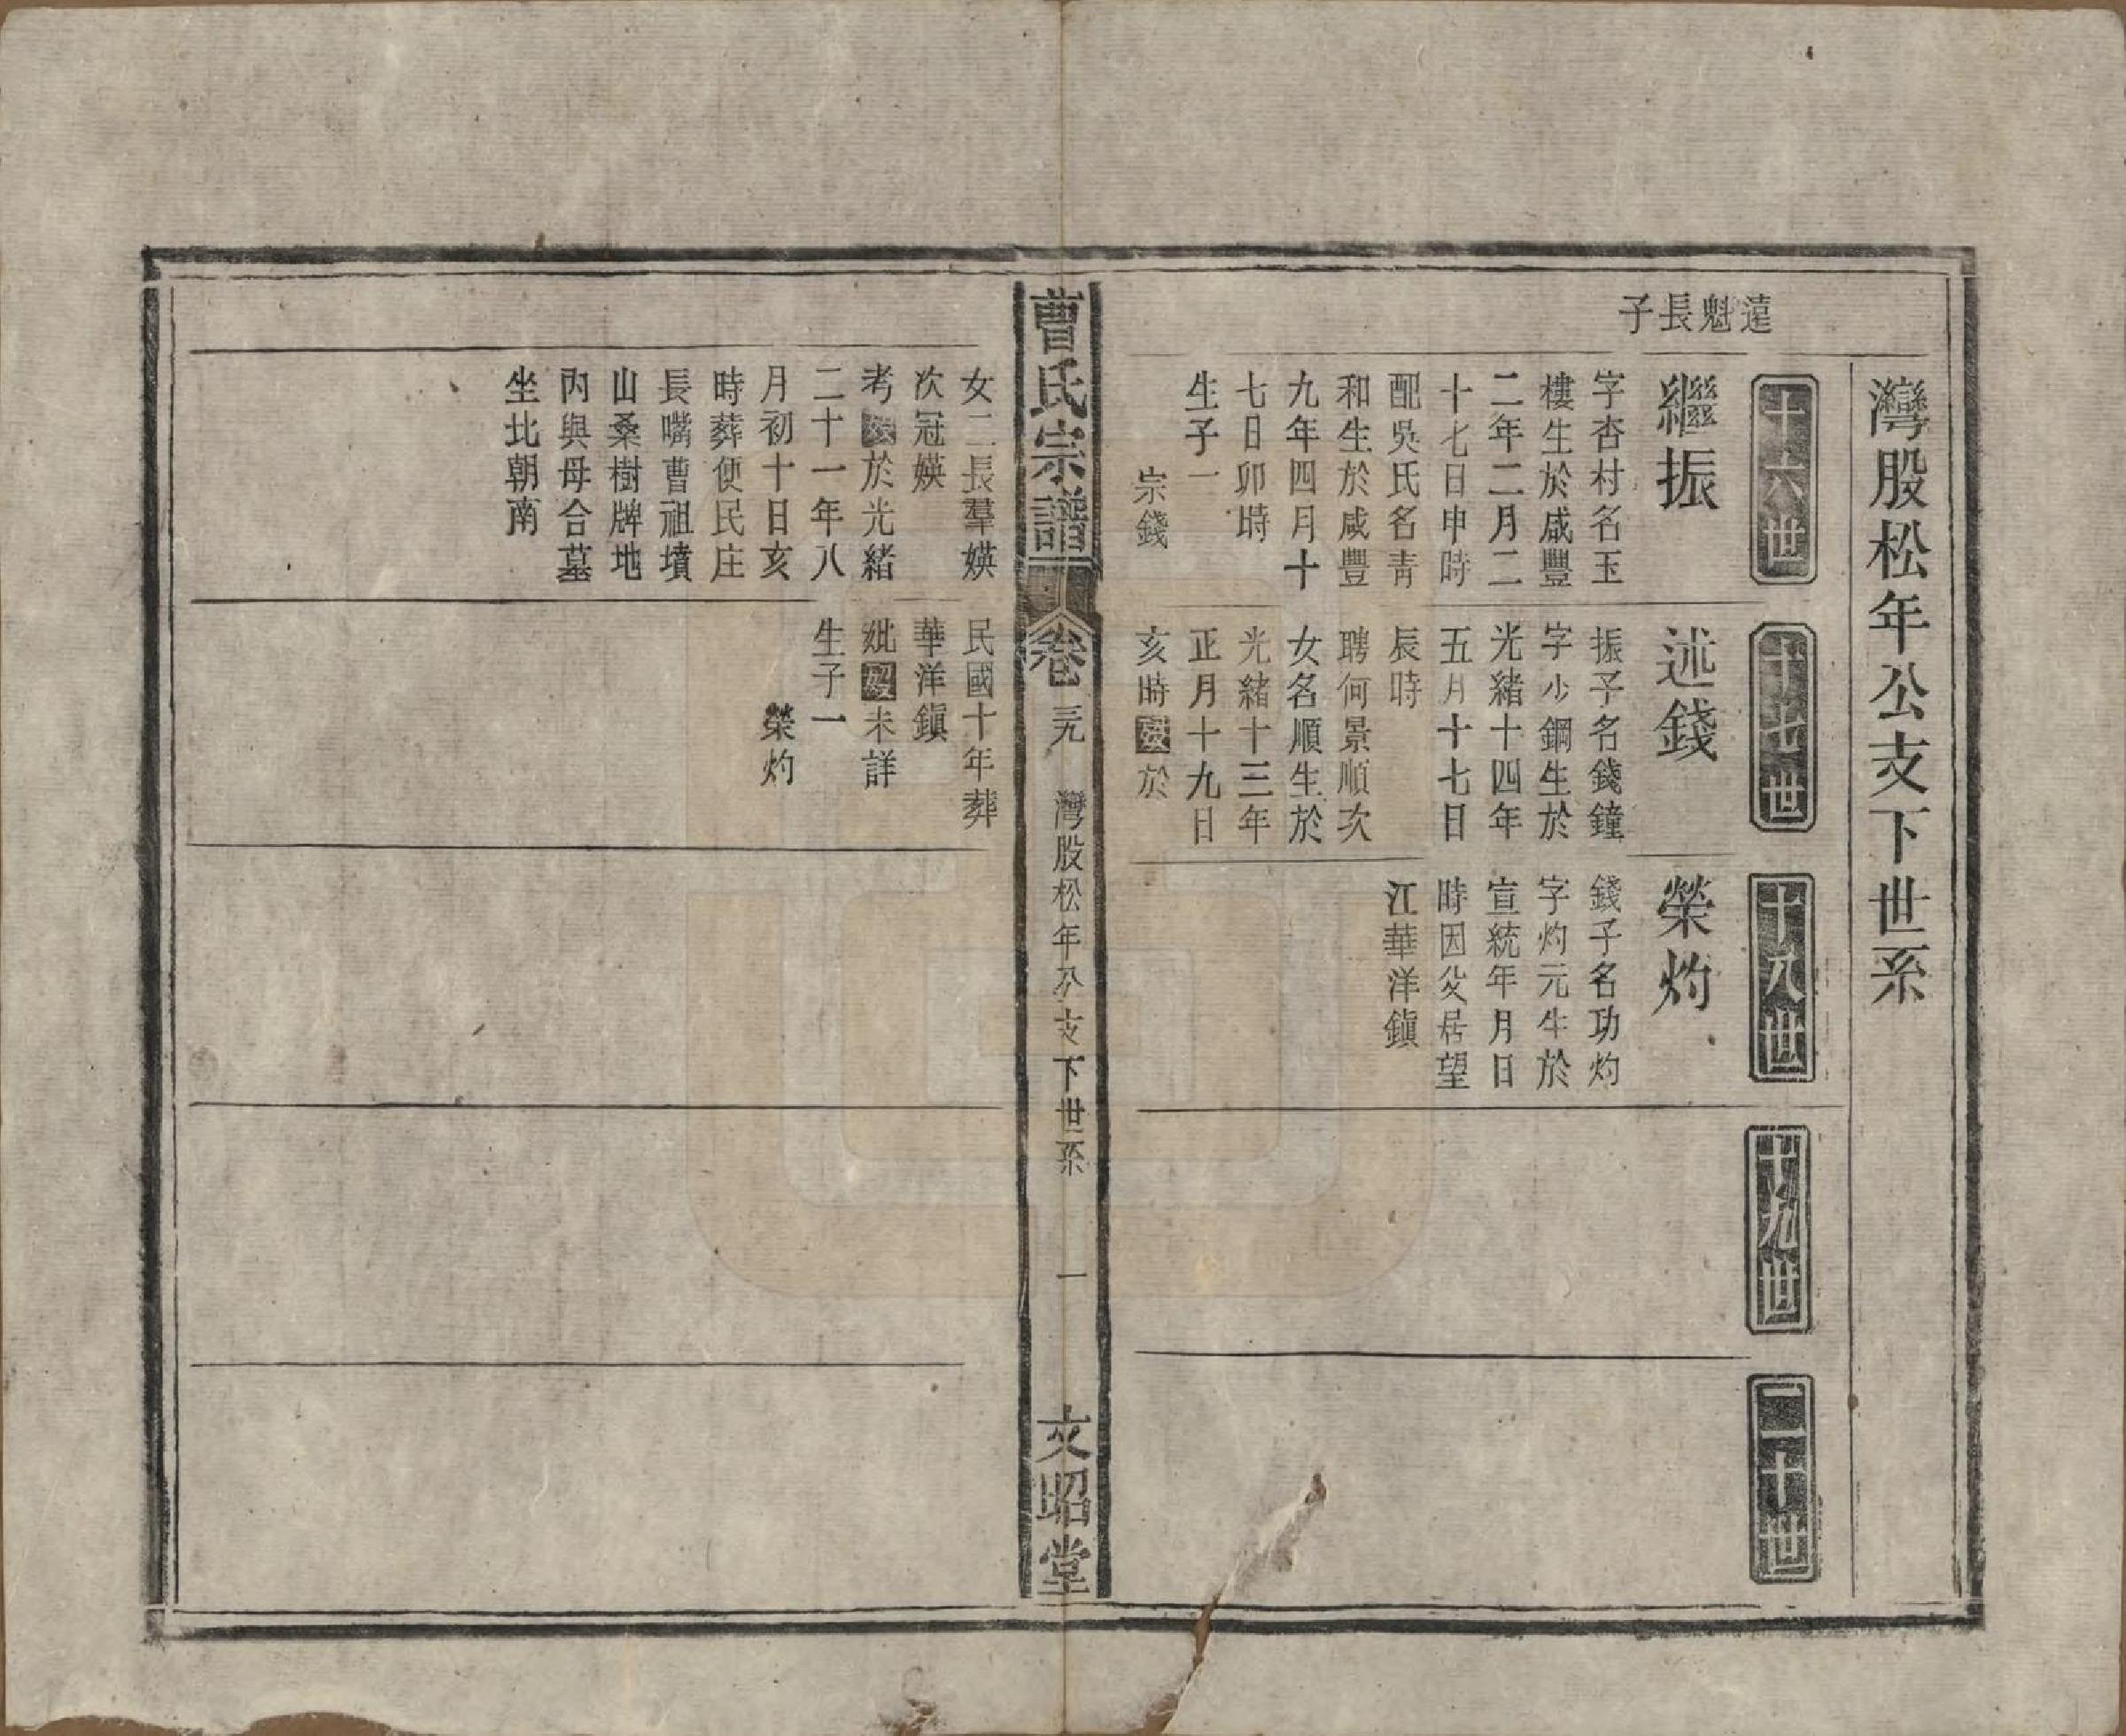 灣股松年公支下世系
十六世
十七世
十八世
十九世
二十世
遠魁長子
繼振
字杏村名玉
樓生於咸豐
二年二月二
十七日申時
配吳氏名青
和生於咸豐
九年四月十
七日卯時
生子一
宗錢
述錢
振子名錢鐘
字少鋼生於
光緒十四年
五月十七日
辰時
聘何景順次
女名順生於
光緒十三年
正月十九日
亥時歿於
榮灼
錢子名功灼
字灼元生於
宣統年月日
時因父居望
江華洋鎮
曹氏宗譜
卷三九
灣股松年公支下世系
一
文昭堂
女二長羣媖
次冠媖
考歿於光緒
二十一年八
月初十日亥
時葬便民庄
長嘴曹祖墳
山桑樹牌地
內與母合墓
坐北朝南
民國十年葬
華洋鎮
妣歿未詳
生子一
榮灼